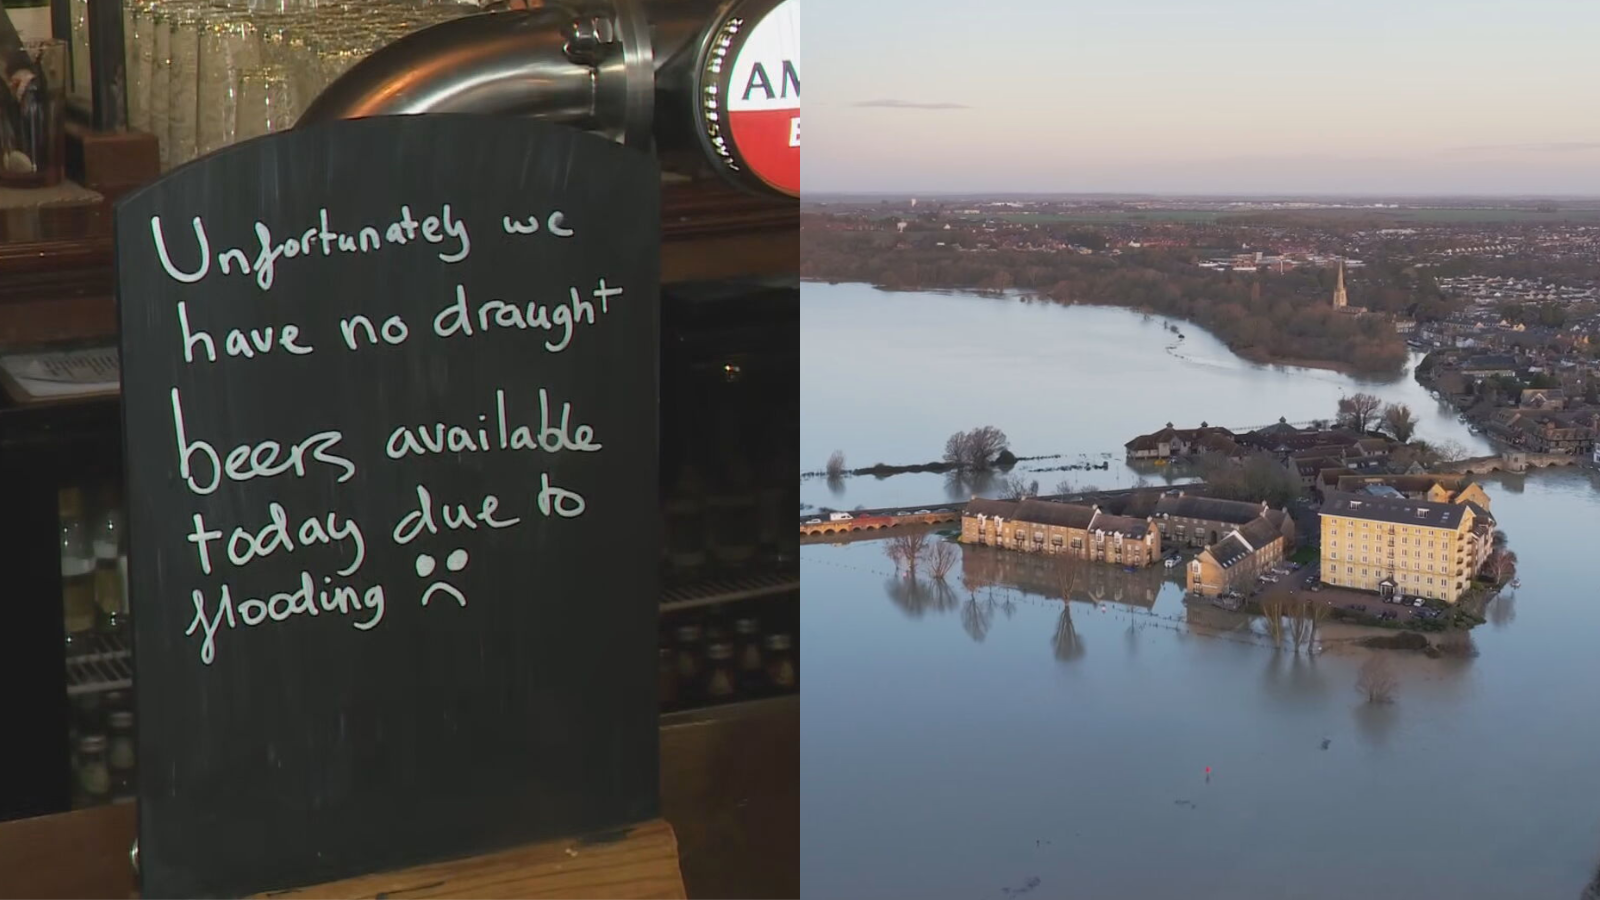 Unfortunately we
have no draught
beers available
today due to
flooding
AM